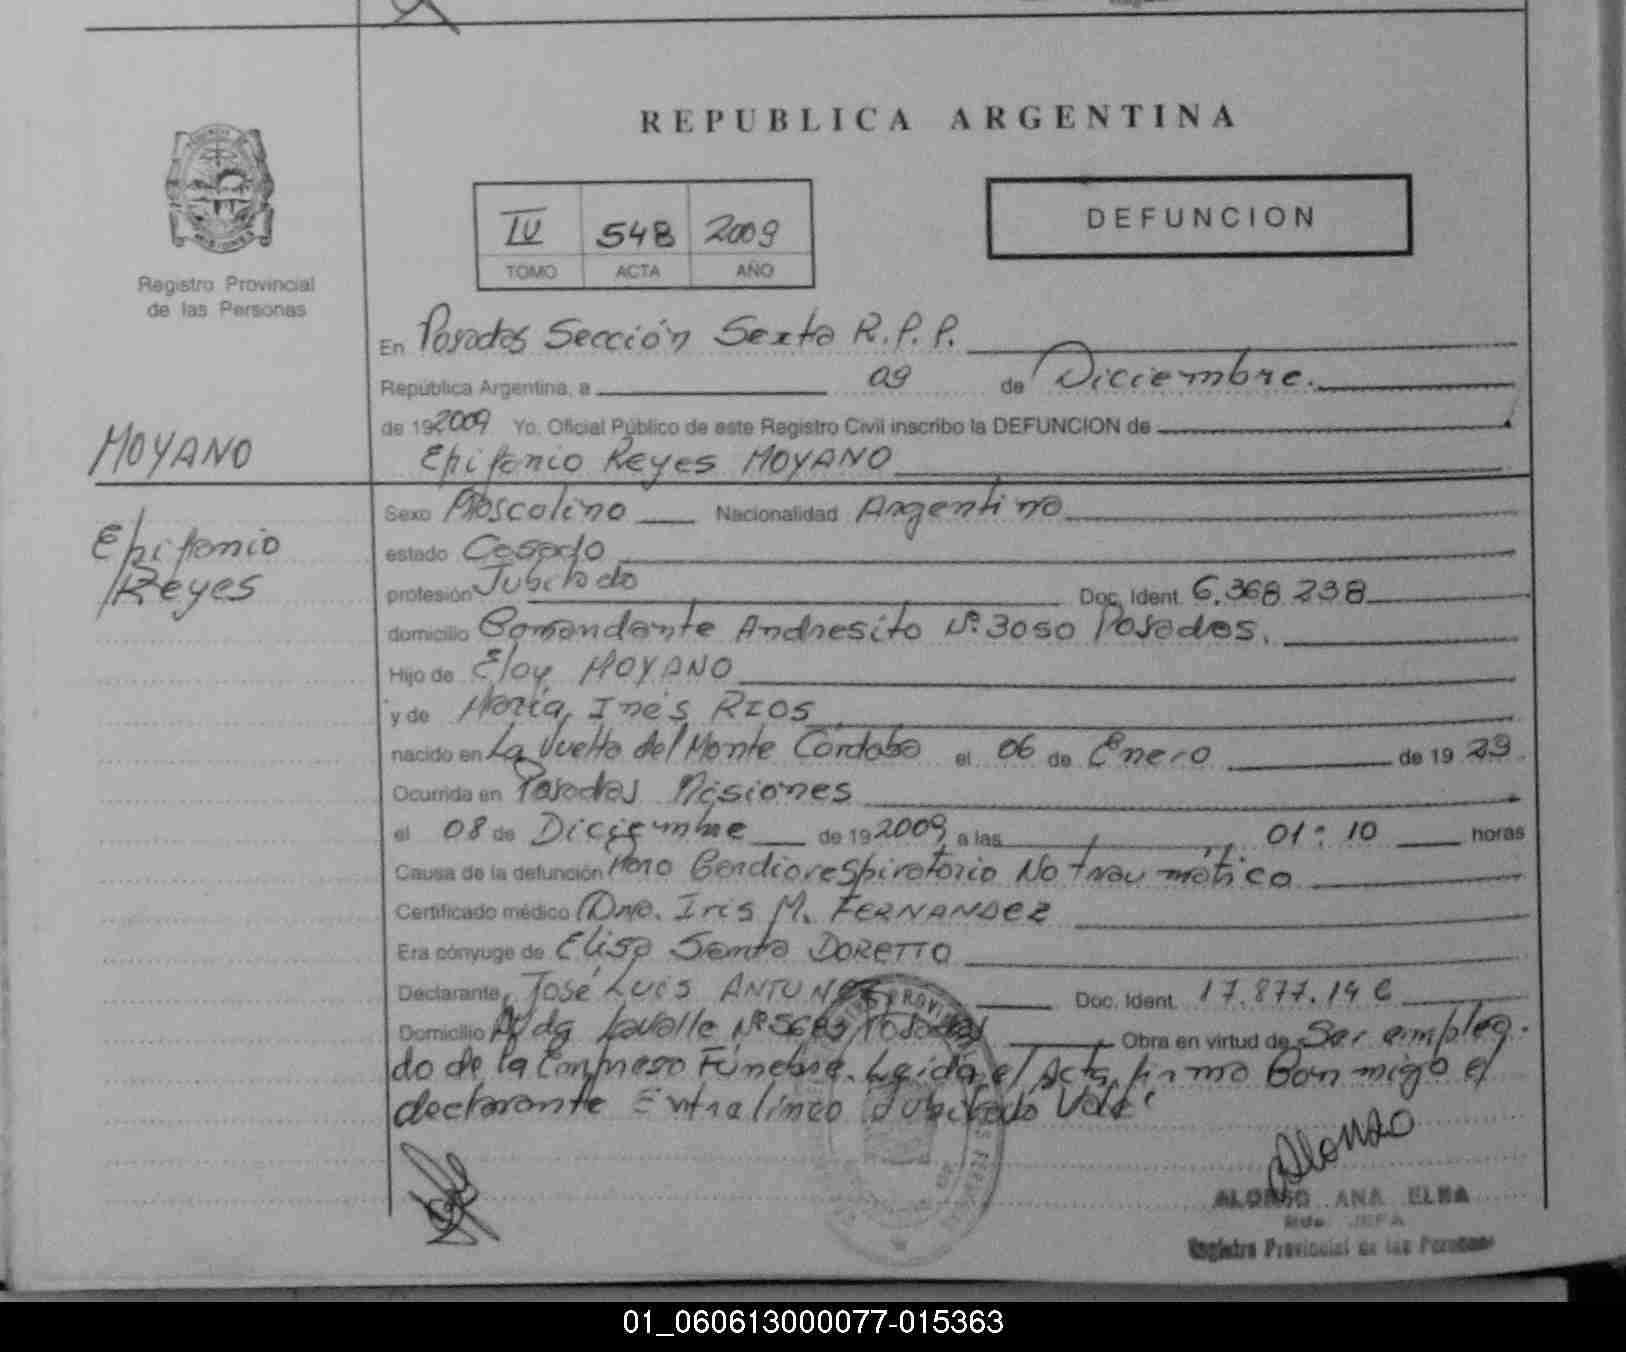 REPUBLICA ARGENTINA
DEFUNCION
IV 548 2009
TOMO ACTA AÑO
Registro Provincial
de las Personas
En Posadas Sección Sexta R.P.P.
República Argentina, a 09 de Diciembre.
de 19 2009 Yo, Oficial Público de este Registro Civil inscribo la DEFUNCION de
MOYANO
Epifanio Reyes MOYANO
Epifanio
Reyes
Sexo Masculino Nacionalidad Argentina
estado Casado
profesión Jubilado Doc. Ident. 6.368.238
domicilio Comandante Andresito Nº 3050 Posadas.
Hijo de Eloy MOYANO
y de María Inés RIOS
nacido en La Vuelta del Monte Córdoba el 06 de Enero de 19 29
Ocurrida en Posadas Misiones
el 08 de Diciembre de 19 2009, a las 01:10 horas
Causa de la defunción Paro Cardiorespiratorio No traumático
Certificado médico Dra. Iris M. FERNANDEZ
Era cónyuge de Elisa Santa DORETTO
Declarante José Luis ANTUNEZ Doc. Ident. 17.877.146
Domicilio Avda Lavalle Nº Posadas Obra en virtud de Ser emplea-
do de la Empresa Fúnebre. Leída el Acta, firma Conmigo el
declarante Entrelíneo Jubilado Vale
Alonzo
ALONSO ANA ELBA
JEFA
Registro Provincial de las Personas
01_060613000077-015363